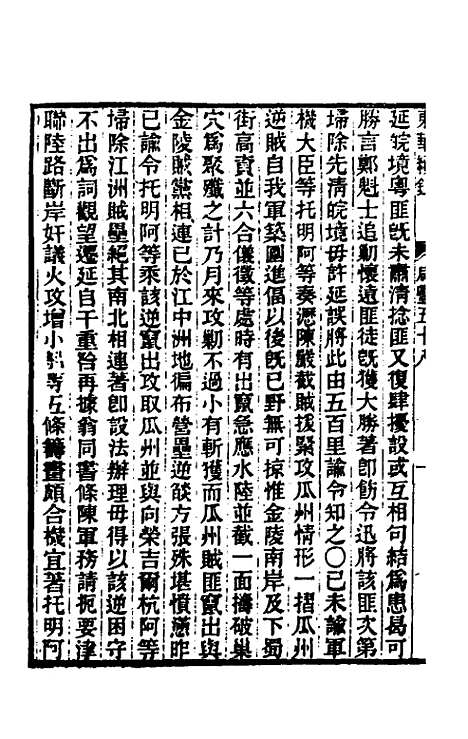 延皖境粵匪旣未肅清捻匪又復肆擾設或互相句結爲患曷可
勝言鄭魁士追勦懷遠匪徒旣獲大勝著卽飭令迅將該匪次第
埽除先清皖境毋許延誤將此由五百里諭令知之〇己未諭軍
機大臣等托明阿等奏瀝陳嚴截賊援緊攻瓜州情形一摺瓜州
逆賊自我軍築圍進偪以後旣已野無可掠惟金陵南岸及下蜀
街高資並六合儀徵等處時有出竄急應水陸並截一面擣破巢
穴爲聚殲之計乃月來攻勦不過小有斬獲而瓜州賊匪竄出與
金陵賊黨相連已於江中洲地徧布營壘逆燄方張殊堪憤懣昨
已諭令托明阿等乘該逆竄出攻取瓜州並與向榮吉爾杭阿等
埽除江洲賊壘絕其南北相連著卽設法辦理毋得以該逆困守
不出爲詞觀望遷延自干重咎再據翁同書條陳軍務請扼要津
聯陸路斷岸奸議火攻增小五條籌畫頗合機宜著托明阿